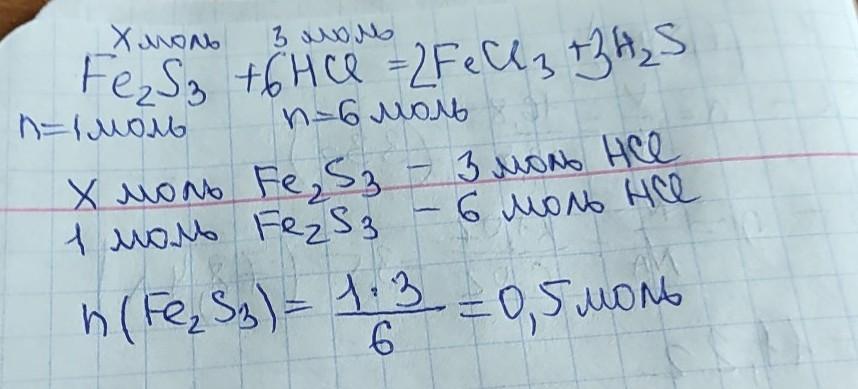 х моль 3 моль
Fe₂S₃ + 6HCl = 2FeCl₃ + 3H₂S
n=1 моль n=6 моль
х моль Fe₂S₃ – 3 моль HCl
1 моль Fe₂S₃ – 6 моль HCl
n(Fe₂S₃) = 1·3/6 = 0,5 моль